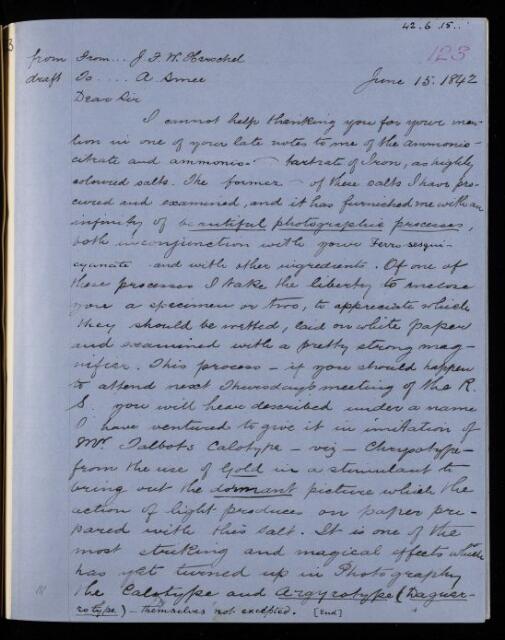 42.6.15..
123
from From... J. F. W. Herschel
draft To.... A Smee June 15. 1842
Dear Sir
I cannot help thanking you for your men-
tion in one of your late notes to me of the ammonio-
citrate and ammonio - tartrate of Iron, as highly
coloured salts. The former - of these salts I have pro-
cured and examined, and it has furnished me with an
infinity of beautiful photographic processes,
both in conjunction with your Ferro-sesqui-
cyanate and with other ingredients. Of one of
these processes I take the liberty to enclose
you a specimen or two, to appreciate which
they should be wetted, laid on white paper
and examined with a pretty strong mag-
nifier. This process - if you should happen
to attend next Thursday's meeting of the R.
S. you will hear described under a name
I have ventured to give it in imitation of
Mr. Talbots Calotype - viz - Chrysotype -
from the use of Gold in a stimulant to
bring out the dormant picture which the
action of light produces on paper pre-
pared with this salt. It is one of the
most striking and magical effects which
has yet turned up in Photography
the Calotype and Argyrotype (Daguer-
rotype) - themselves not excepted. [End]